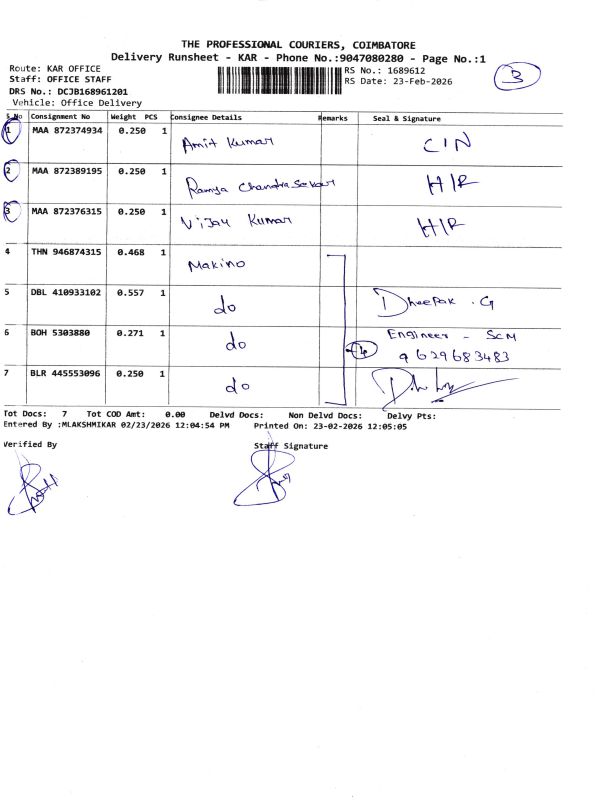 THE PROFESSIONAL COURIERS, COIMBATORE
Delivery Runsheet - KAR - Phone No.:9047080280 - Page No.:1
Route: KAR OFFICE
RS No.: 1689612
3
Staff: OFFICE STAFF
RS Date: 23-Feb-2026
DRS No.: DCJB168961201
Vehicle: Office Delivery
S.No Consignment No Weight PCS Consignee Details Remarks Seal & Signature
1 MAA 872374934 0.250 1 Amit Kumar CIN
2 MAA 872389195 0.250 1 Ramya Chandrasekar H/R
3 MAA 872376315 0.250 1 Vijay Kumar H/R
4 THN 946874315 0.468 1 Makino
5 DBL 410933102 0.557 1 do Dheepak . G
6 BOH 5303880 0.271 1 do Engineer - SCM
9629683483
7 BLR 445553096 0.250 1 do
Tot Docs: 7 Tot COD Amt: 0.00 Delvd Docs: Non Delvd Docs: Delvy Pts:
Entered By :MLAKSHMIKAR 02/23/2026 12:04:54 PM Printed On: 23-02-2026 12:05:05
Verified By Staff Signature